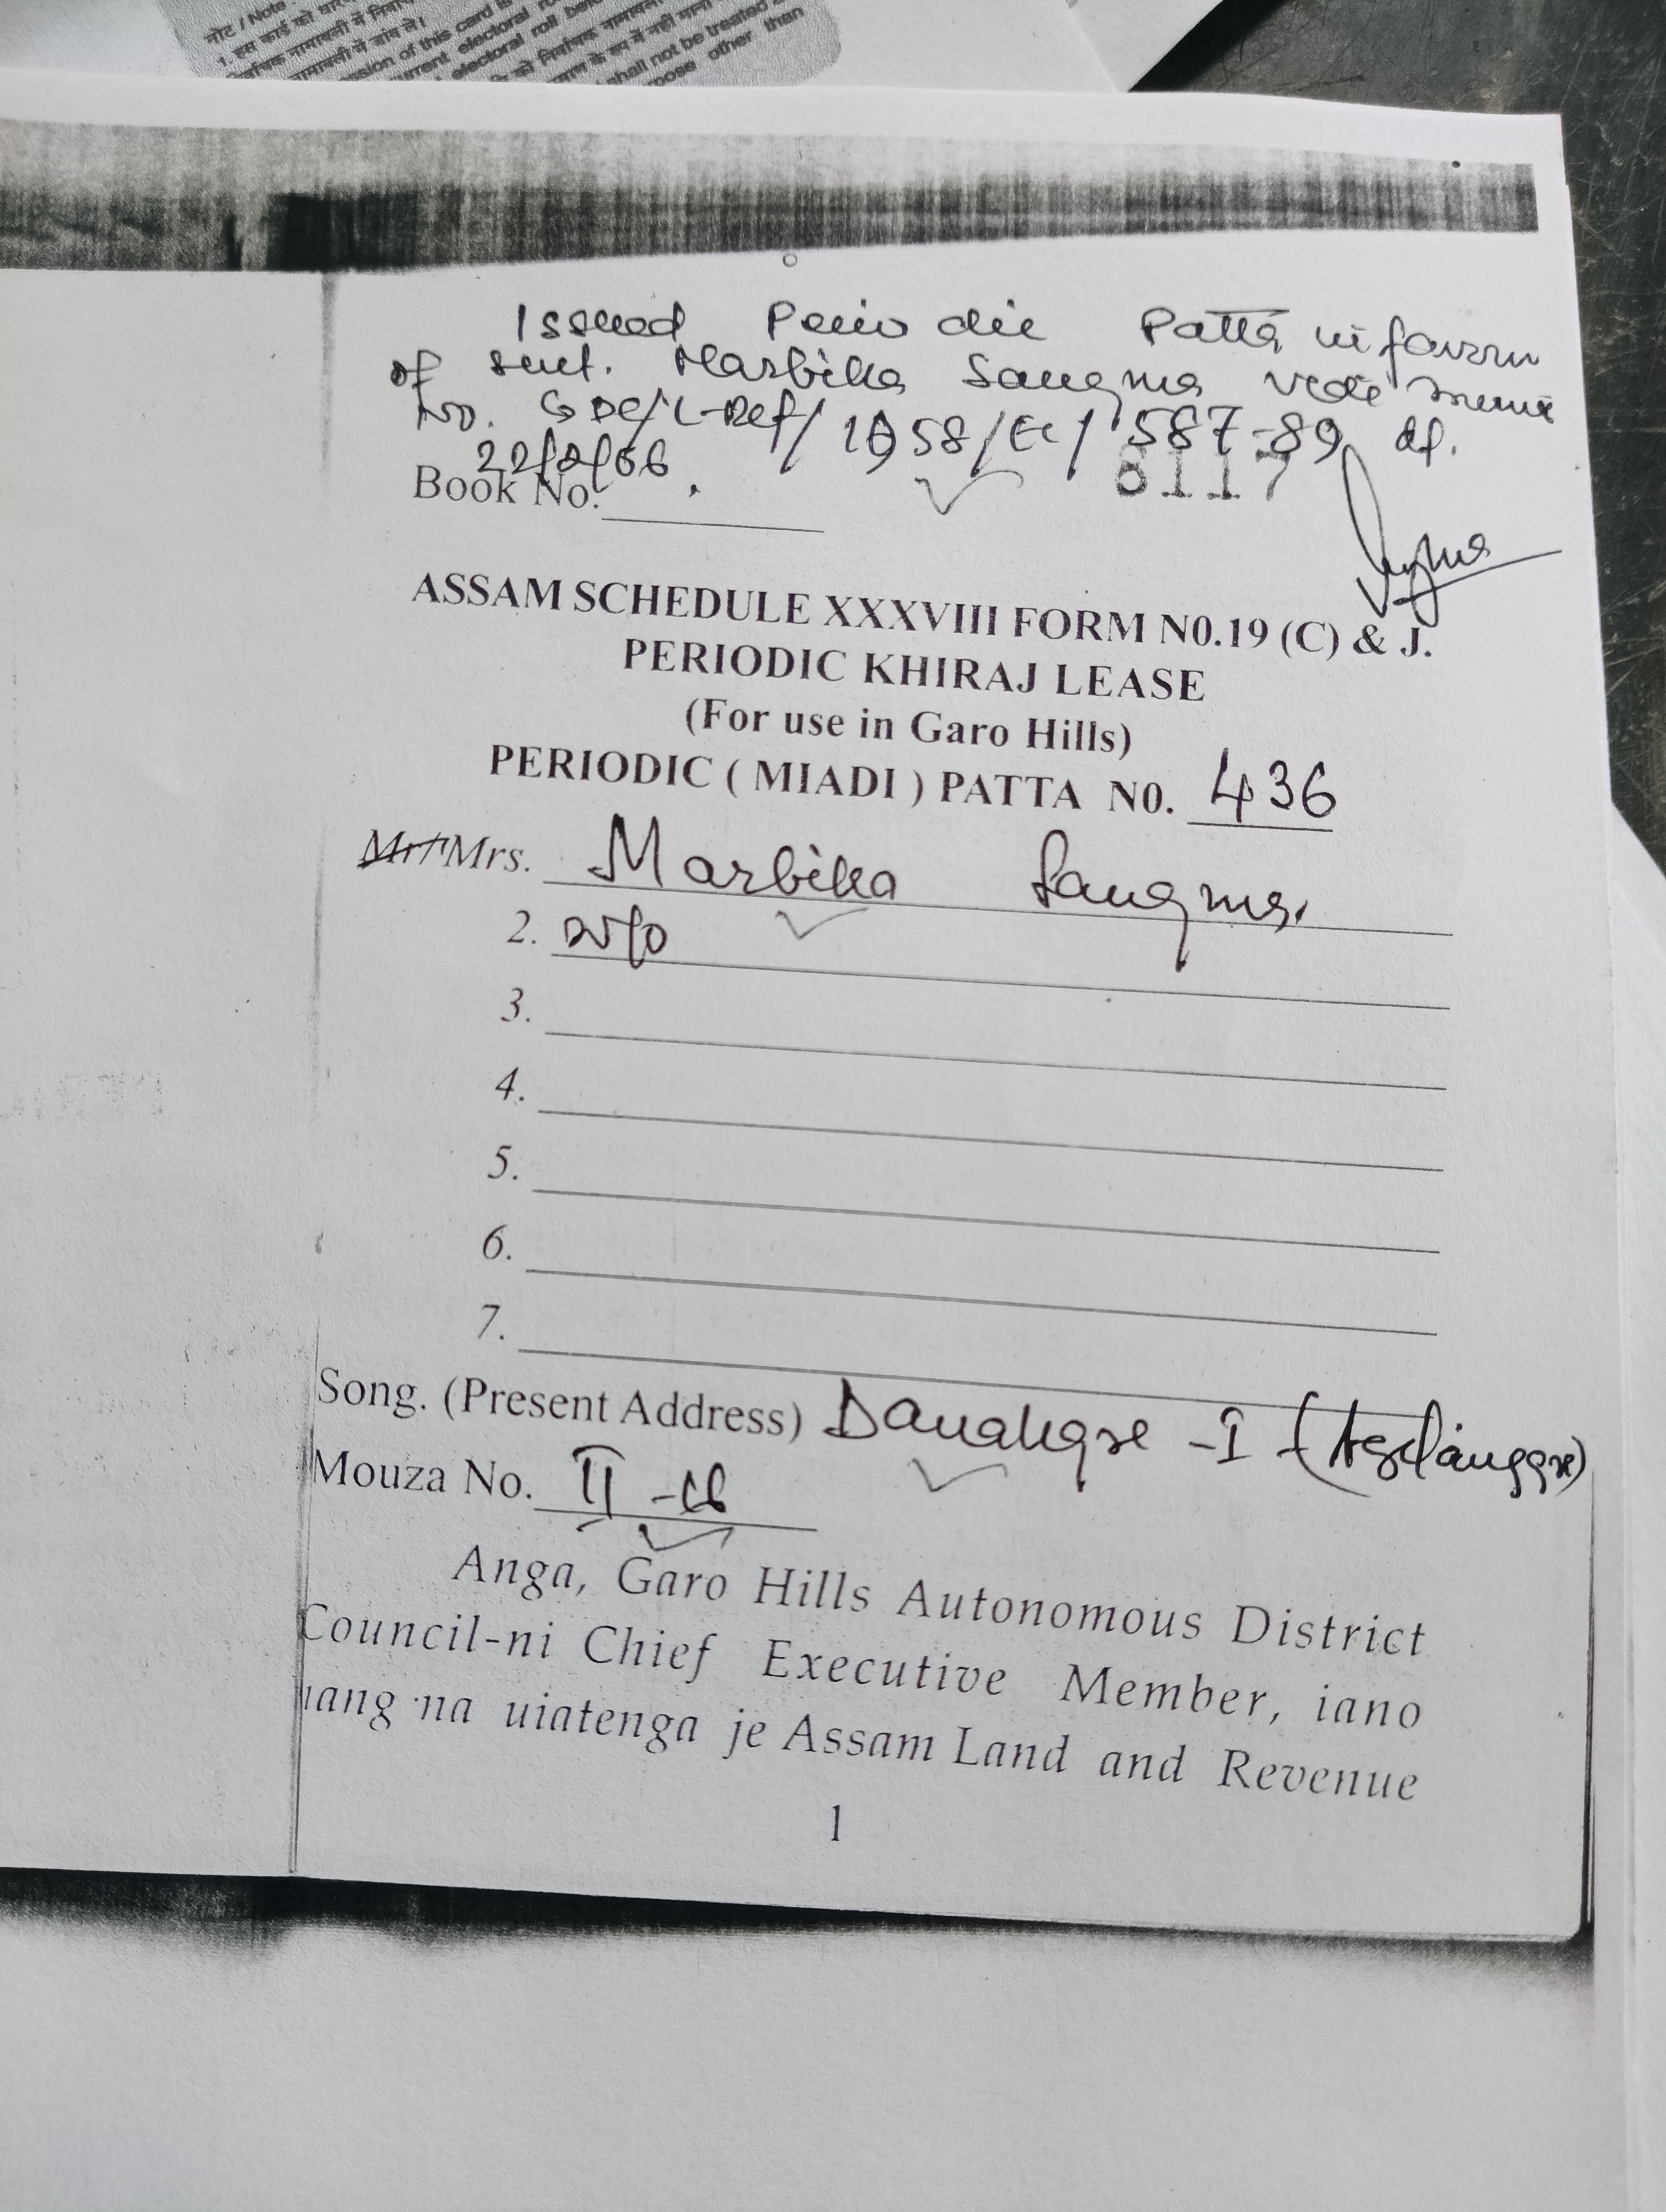 नोट / Note
1. इस कार्ड को
ssion of this card
urrent electoral
electoral roll
shall not be treated
other than
Issued Periodic Patta in favour
of Smt. Marbilla Sangma vide memo
No. /1958/ /587-89 dt.
22/2/66.
Book No. 8117
ASSAM SCHEDULE XXXVIII FORM N0.19 (C) & J.
PERIODIC KHIRAJ LEASE
(For use in Garo Hills)
PERIODIC ( MIADI ) PATTA N0. 436
Mr/Mrs. Marbilla Sangma.
2. w/o
3.
4.
5.
6.
7.
Song. (Present Address) Danakgre -I
Mouza No. II
Anga, Garo Hills Autonomous District
Council-ni Chief Executive Member, iano
nang·na uiatenga je Assam Land and Revenue
1